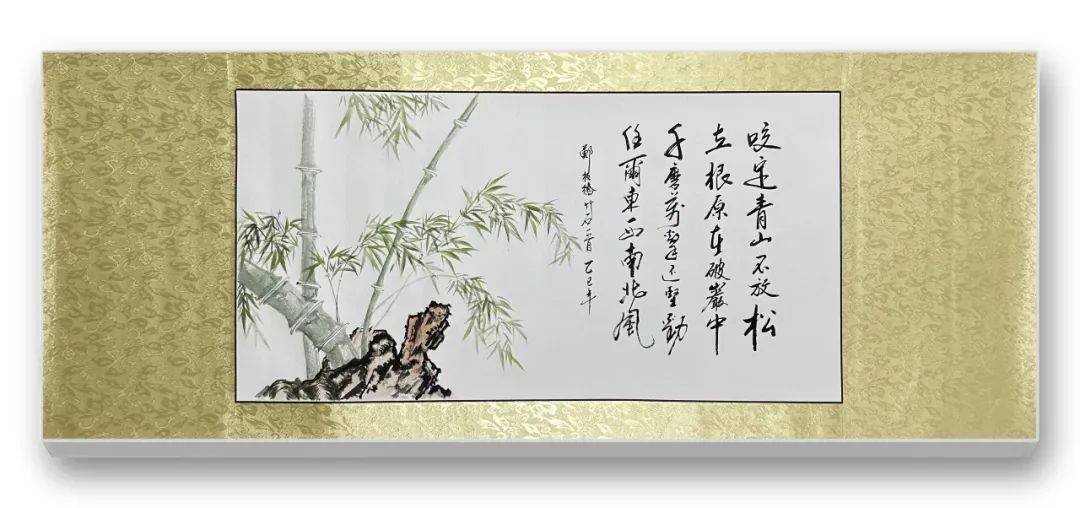 咬定青山不放松
立根原在破巖中
千磨萬擊还坚勁
任爾東西南北風
鄭板橋竹石一首 乙巳年